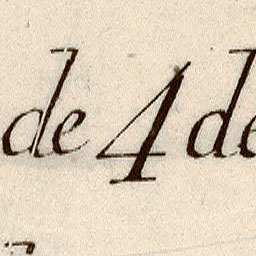 de 4 de